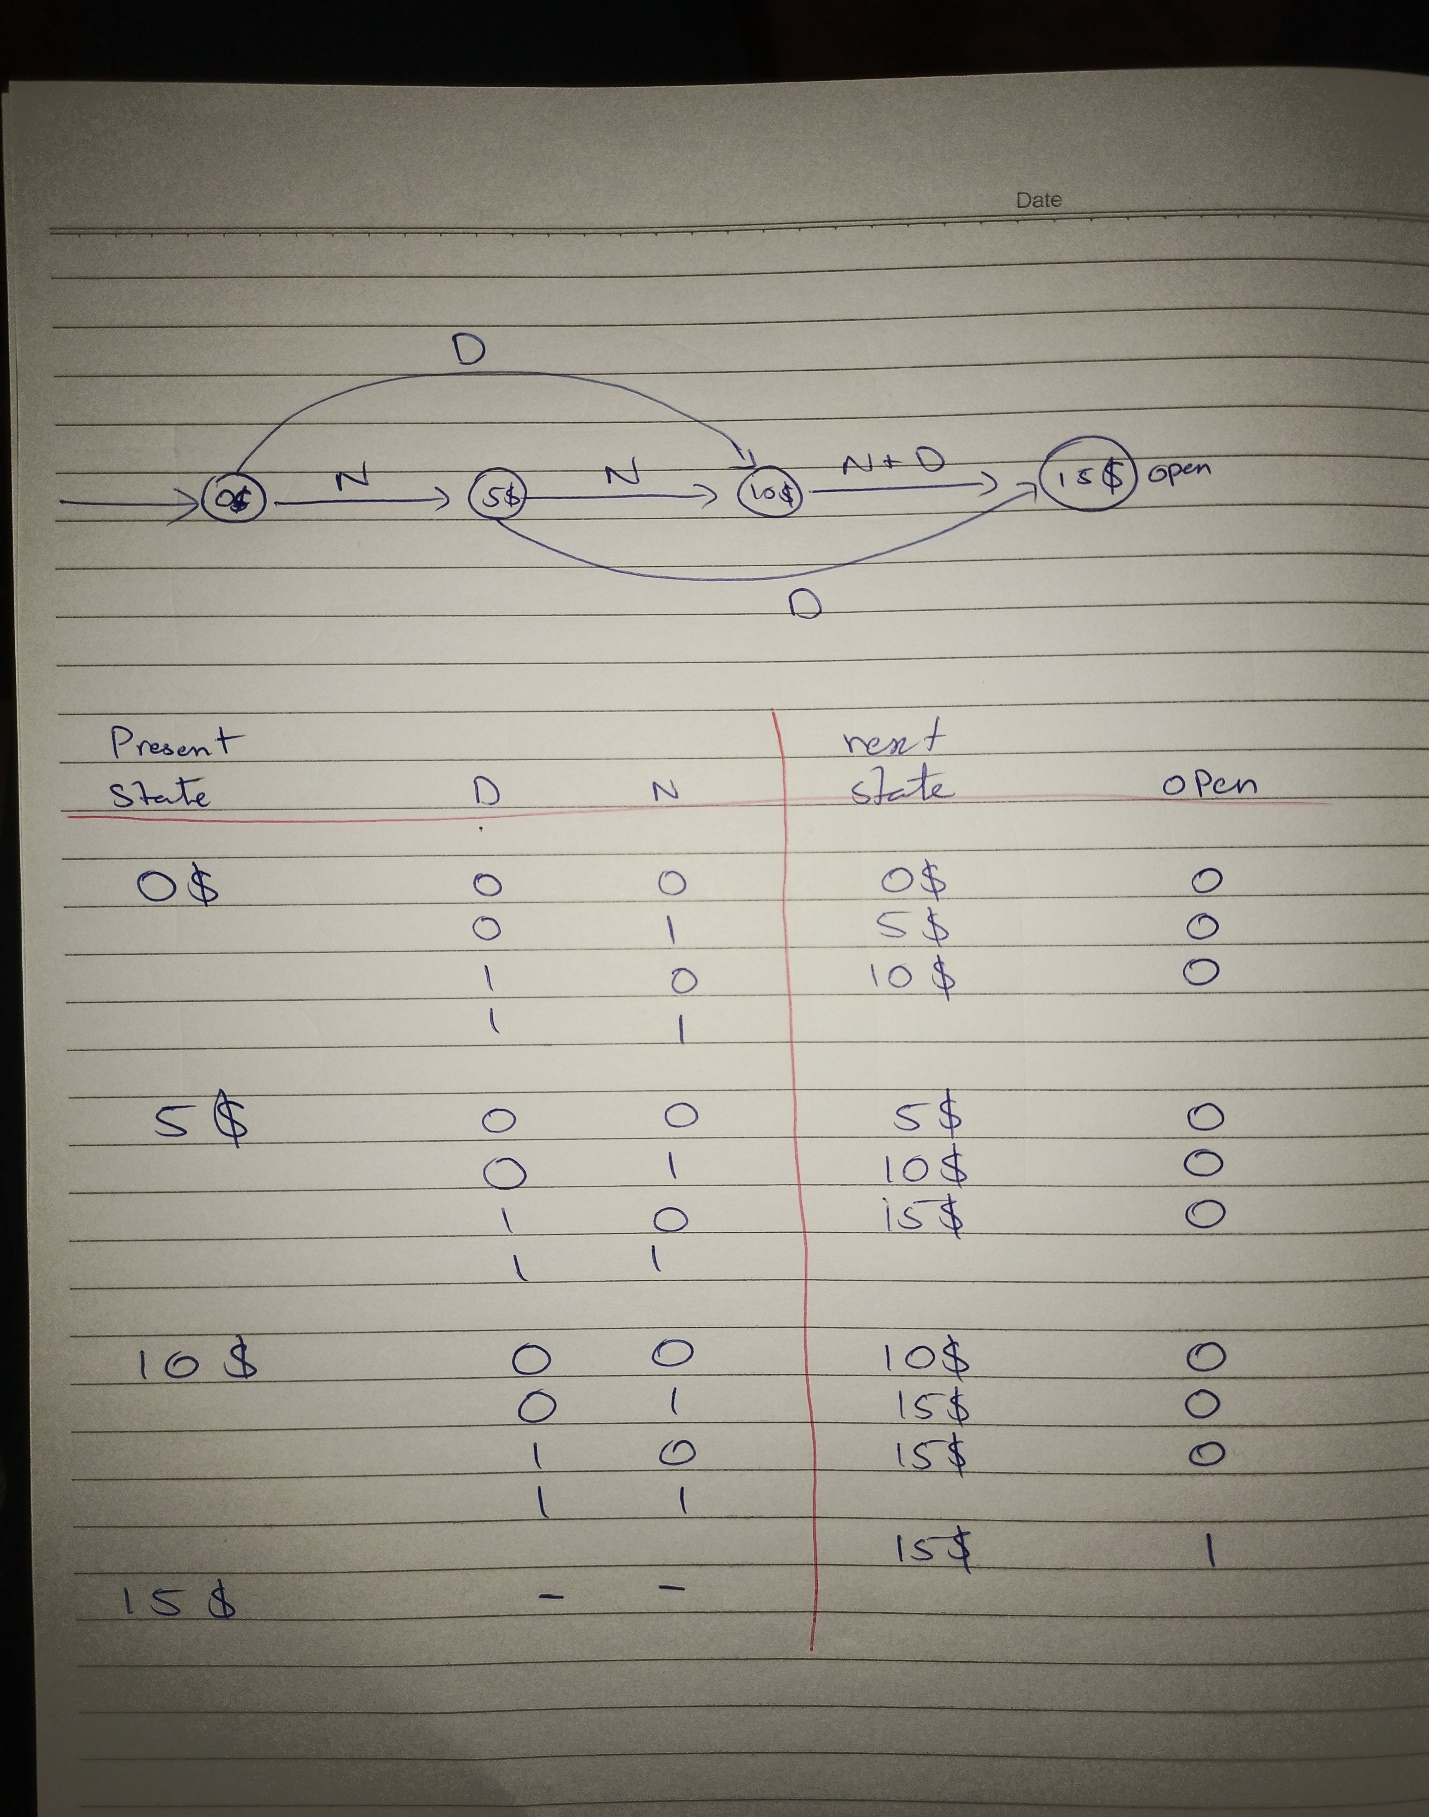 Date
D
0$ N 5$ N 10$ N+D 15$ open
D
Present next
State D N state open
0$ 0 0 0$ 0
0 1 5$ 0
1 0 10$ 0
1 1
5$ 0 0 5$ 0
0 1 10$ 0
1 0 15$ 0
1 1
10$ 0 0 10$ 0
0 1 15$ 0
1 0 15$ 0
1 1
15$ 1
15$ - -